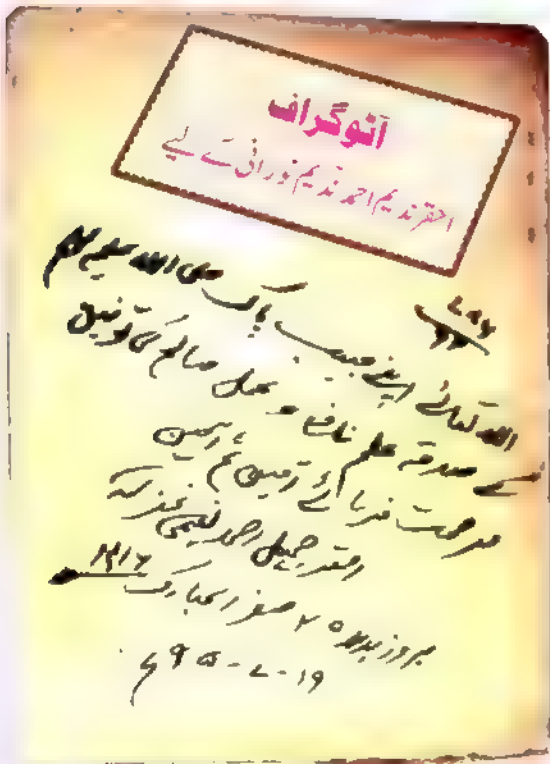 آٹوگراف
احقر ندیم احمد ندیم نورانی کے لیے
۷۸۶
۹۲
اللہ تعالیٰ اپنے حبیب پاک صلی اللہ علیہ وسلم
کے صدقہ علم نافع و عمل صالح کی توفیق
مرحمت فرمائے آمین ثم آمین
احقر جمیل احمد نعیمی غفرلہ
بروز بدھ ۲۰ صفر المبارک ۱۴۱۶
۱۹-۷-۹۵ء